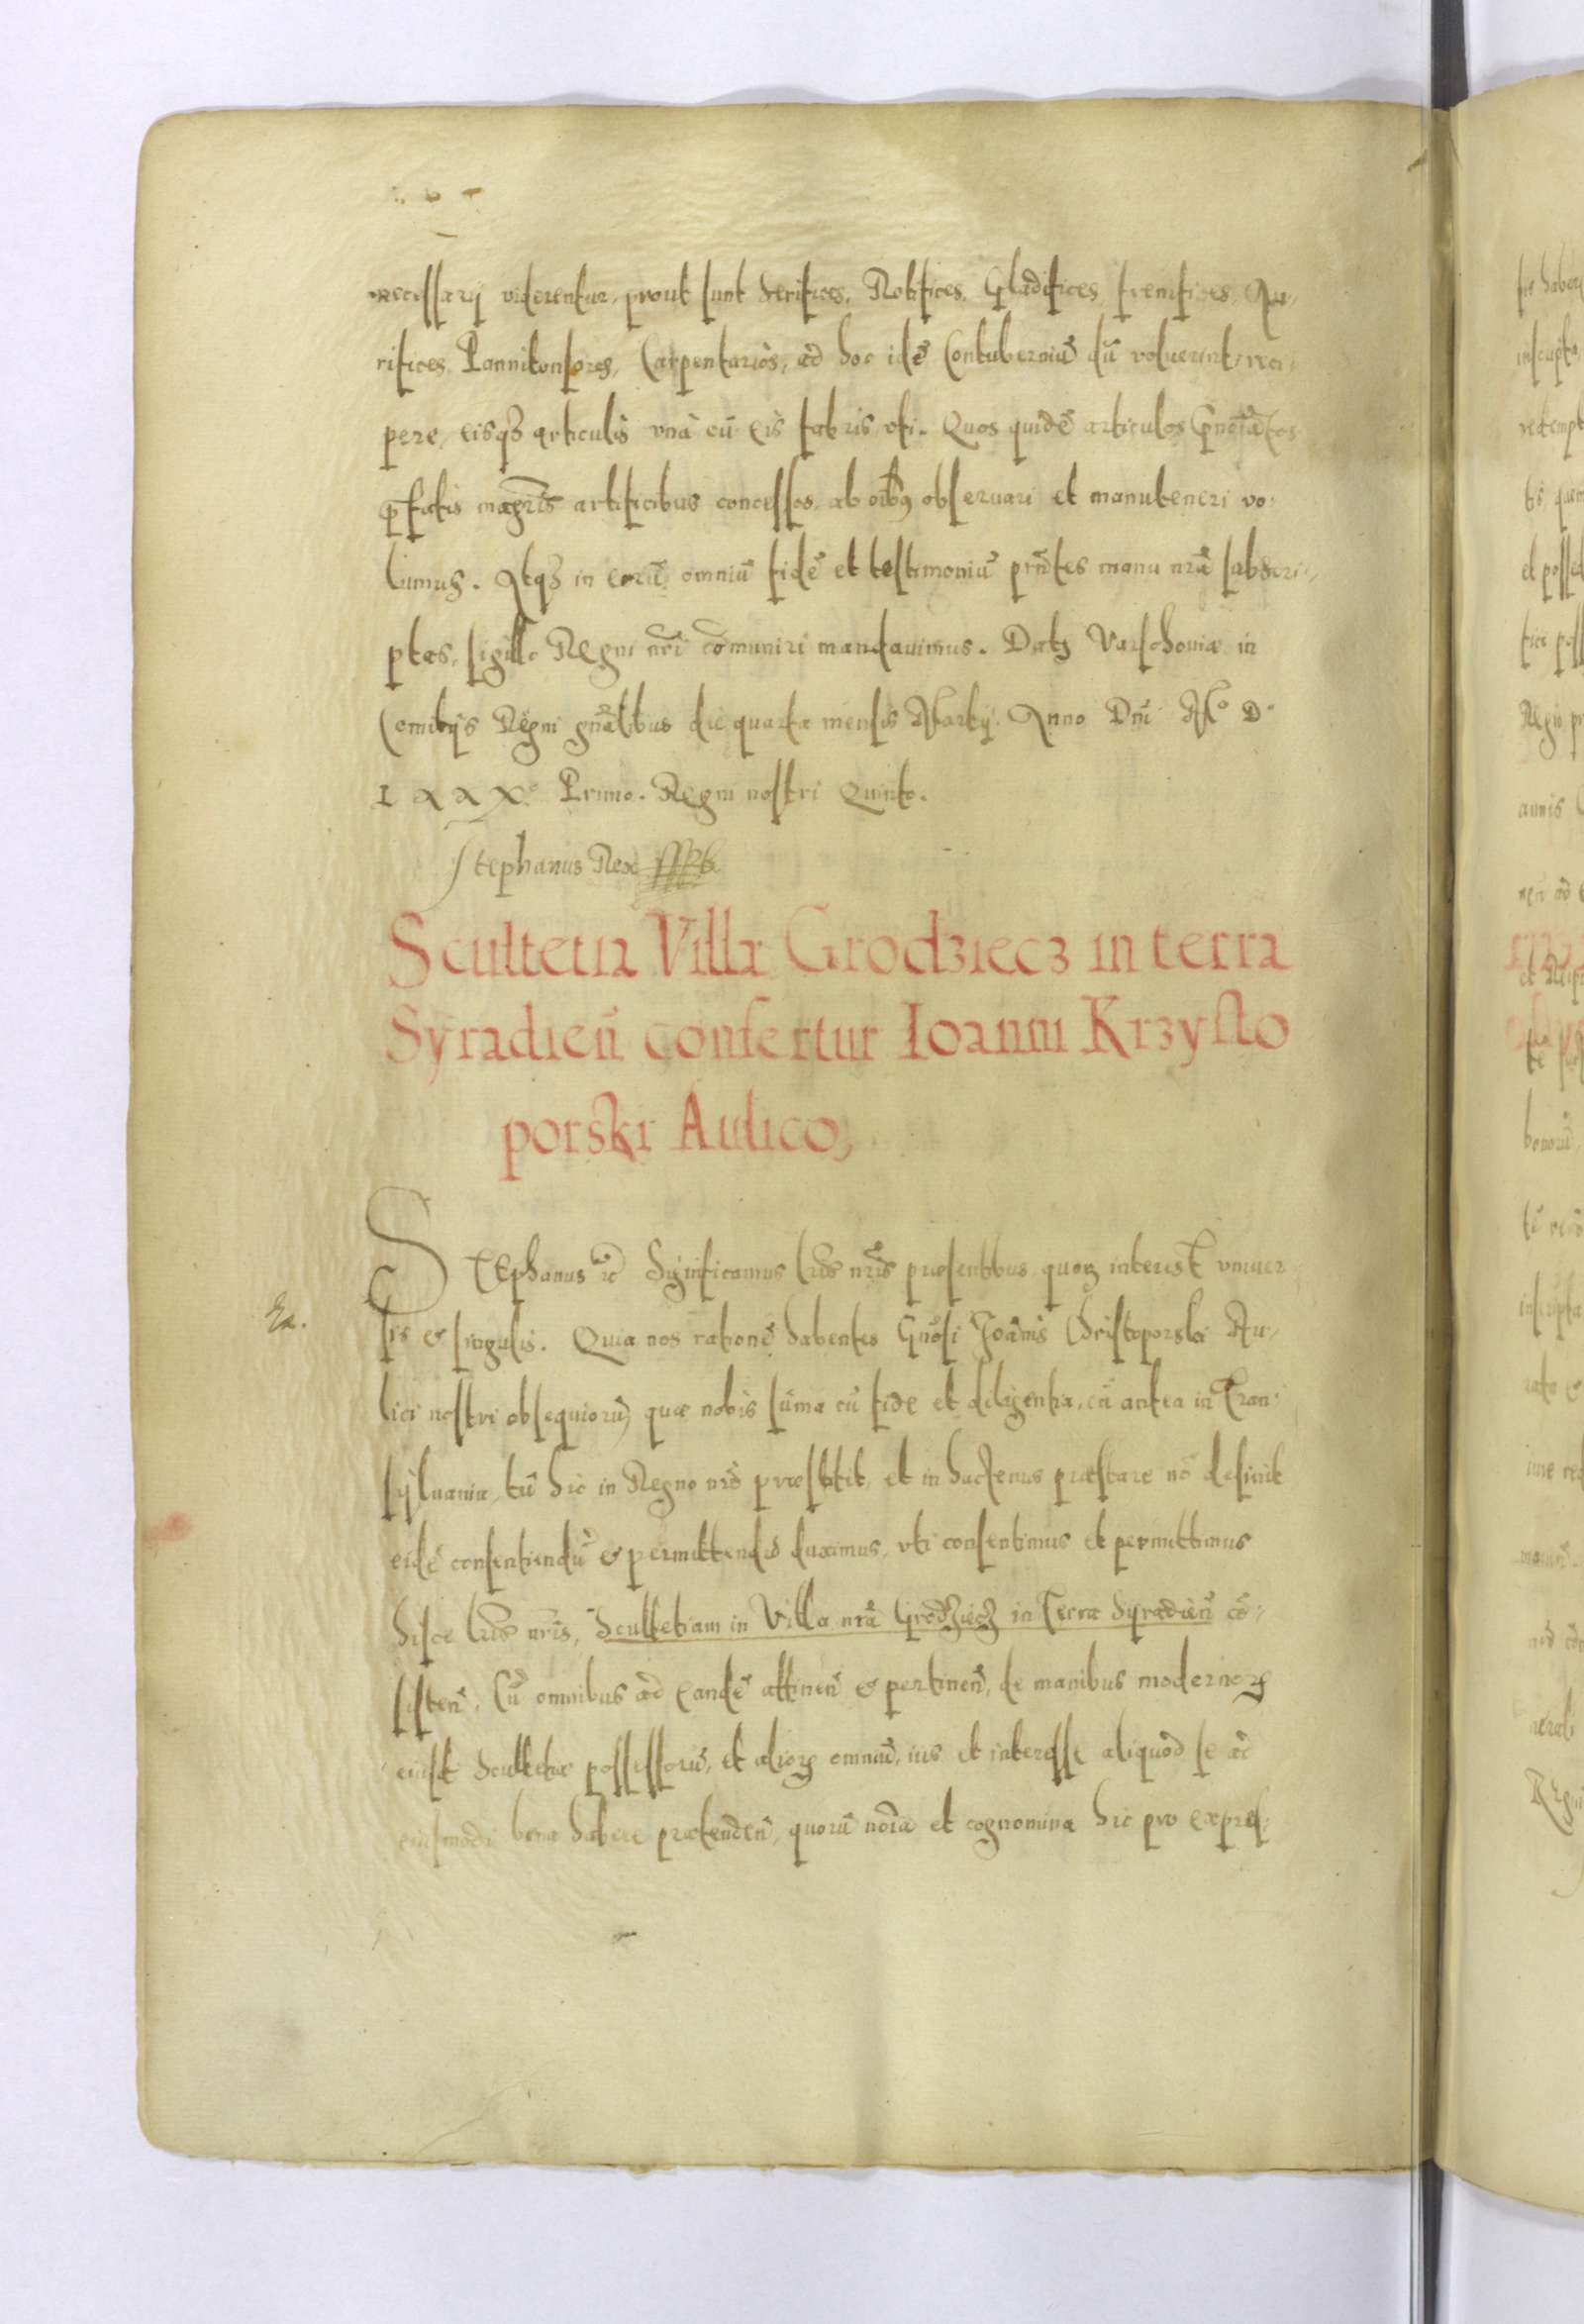 necessarij viderentur, prout sunt Serifices, Rotifices, Gladifices, frenifices, Au-
rifices, Pannitonsores, Carpentarios, ad hoc idē Contuberniū dū voluerint, reci-
pere, eisqȝ articulis vnà cū eis fabris vti. Quos quidē articulos
artificibus concessos, ab oībꝯ obseruari et manuteneri vo-
lumus. Atqȝ in eorū omniū fidē et testimoniū prn̄tes manu nr̄a subscri-
ptas, sigillo Regni nr̄i cōmuniri mandauimus. Datȝ Varschouiæ in
Comitijs Regni gn̄alibus die quarta mensis Martij. Anno Dnī Mº Dº
LXXXº Primo. Regni nostri Quinto.
Stephanus Rex
Scultetia Villæ Grodziecz in terra
Syradień confertur Ioanni Krzysto
porski Aulico,
STEphanus etc Significamus lr̄is nr̄is præsentibus quorꝫ interest vniuer
sis & singulis. Quia nos rationē habentes Gn̄osi Joānis Christoporski Au-
lici nostri obsequiorū, quæ nobis sūma cū fide et diligentia, cū antea in Tran-
syluania, tū hic in Regno nr̄o præstitit, et in hactenus præstare nō desinit
eidē consentiendū & permittendū duximus, vti consentimus et permittimus
hisce lr̄is nr̄is, Scultetiam in Villa nr̄a Grodziecz in Terra Syradien̄ cō-
sisten̄. Cū omnibus ad eandē attinen̄ & pertinen̄, de manibus modernorꝫ
eiusd Scultetiæ possessorū, et aliorꝫ omniū, ius et interesse aliquod se ad
eiusmodi bona habere prætenden̄, quorū noīa et cognomina hic pro expres-